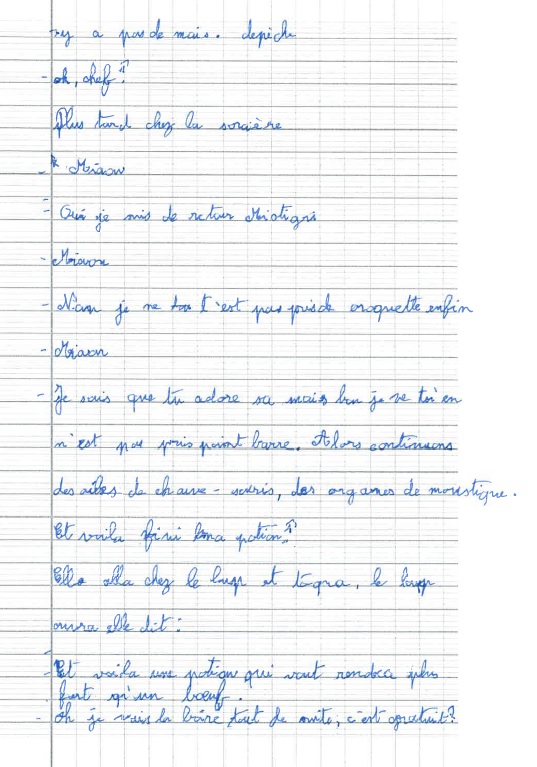 n'y a pas de mais. depêch
- oh, chef !
Plus tard chez la sorcière
- Miaou
- Oui je suis de retour Miotigri
- Miaou
- Nan je ne t'est pas pris de croquette enfin
- Miaou
- Je sais que tu adore sa mais bon je ne t'en
n'est pas pris point barre. Alors continuons
des ailes de chauve-souris, des organes de moustique.
Et voila fini ma potion !
Elle alla chez le loup et toqua, le loup
ouvra elle dit :
- Et voila une potion qui vout rendra plus
fort qu'un bœuf.
- Oh je vais la boire tout de suite, c'est gratuit ?